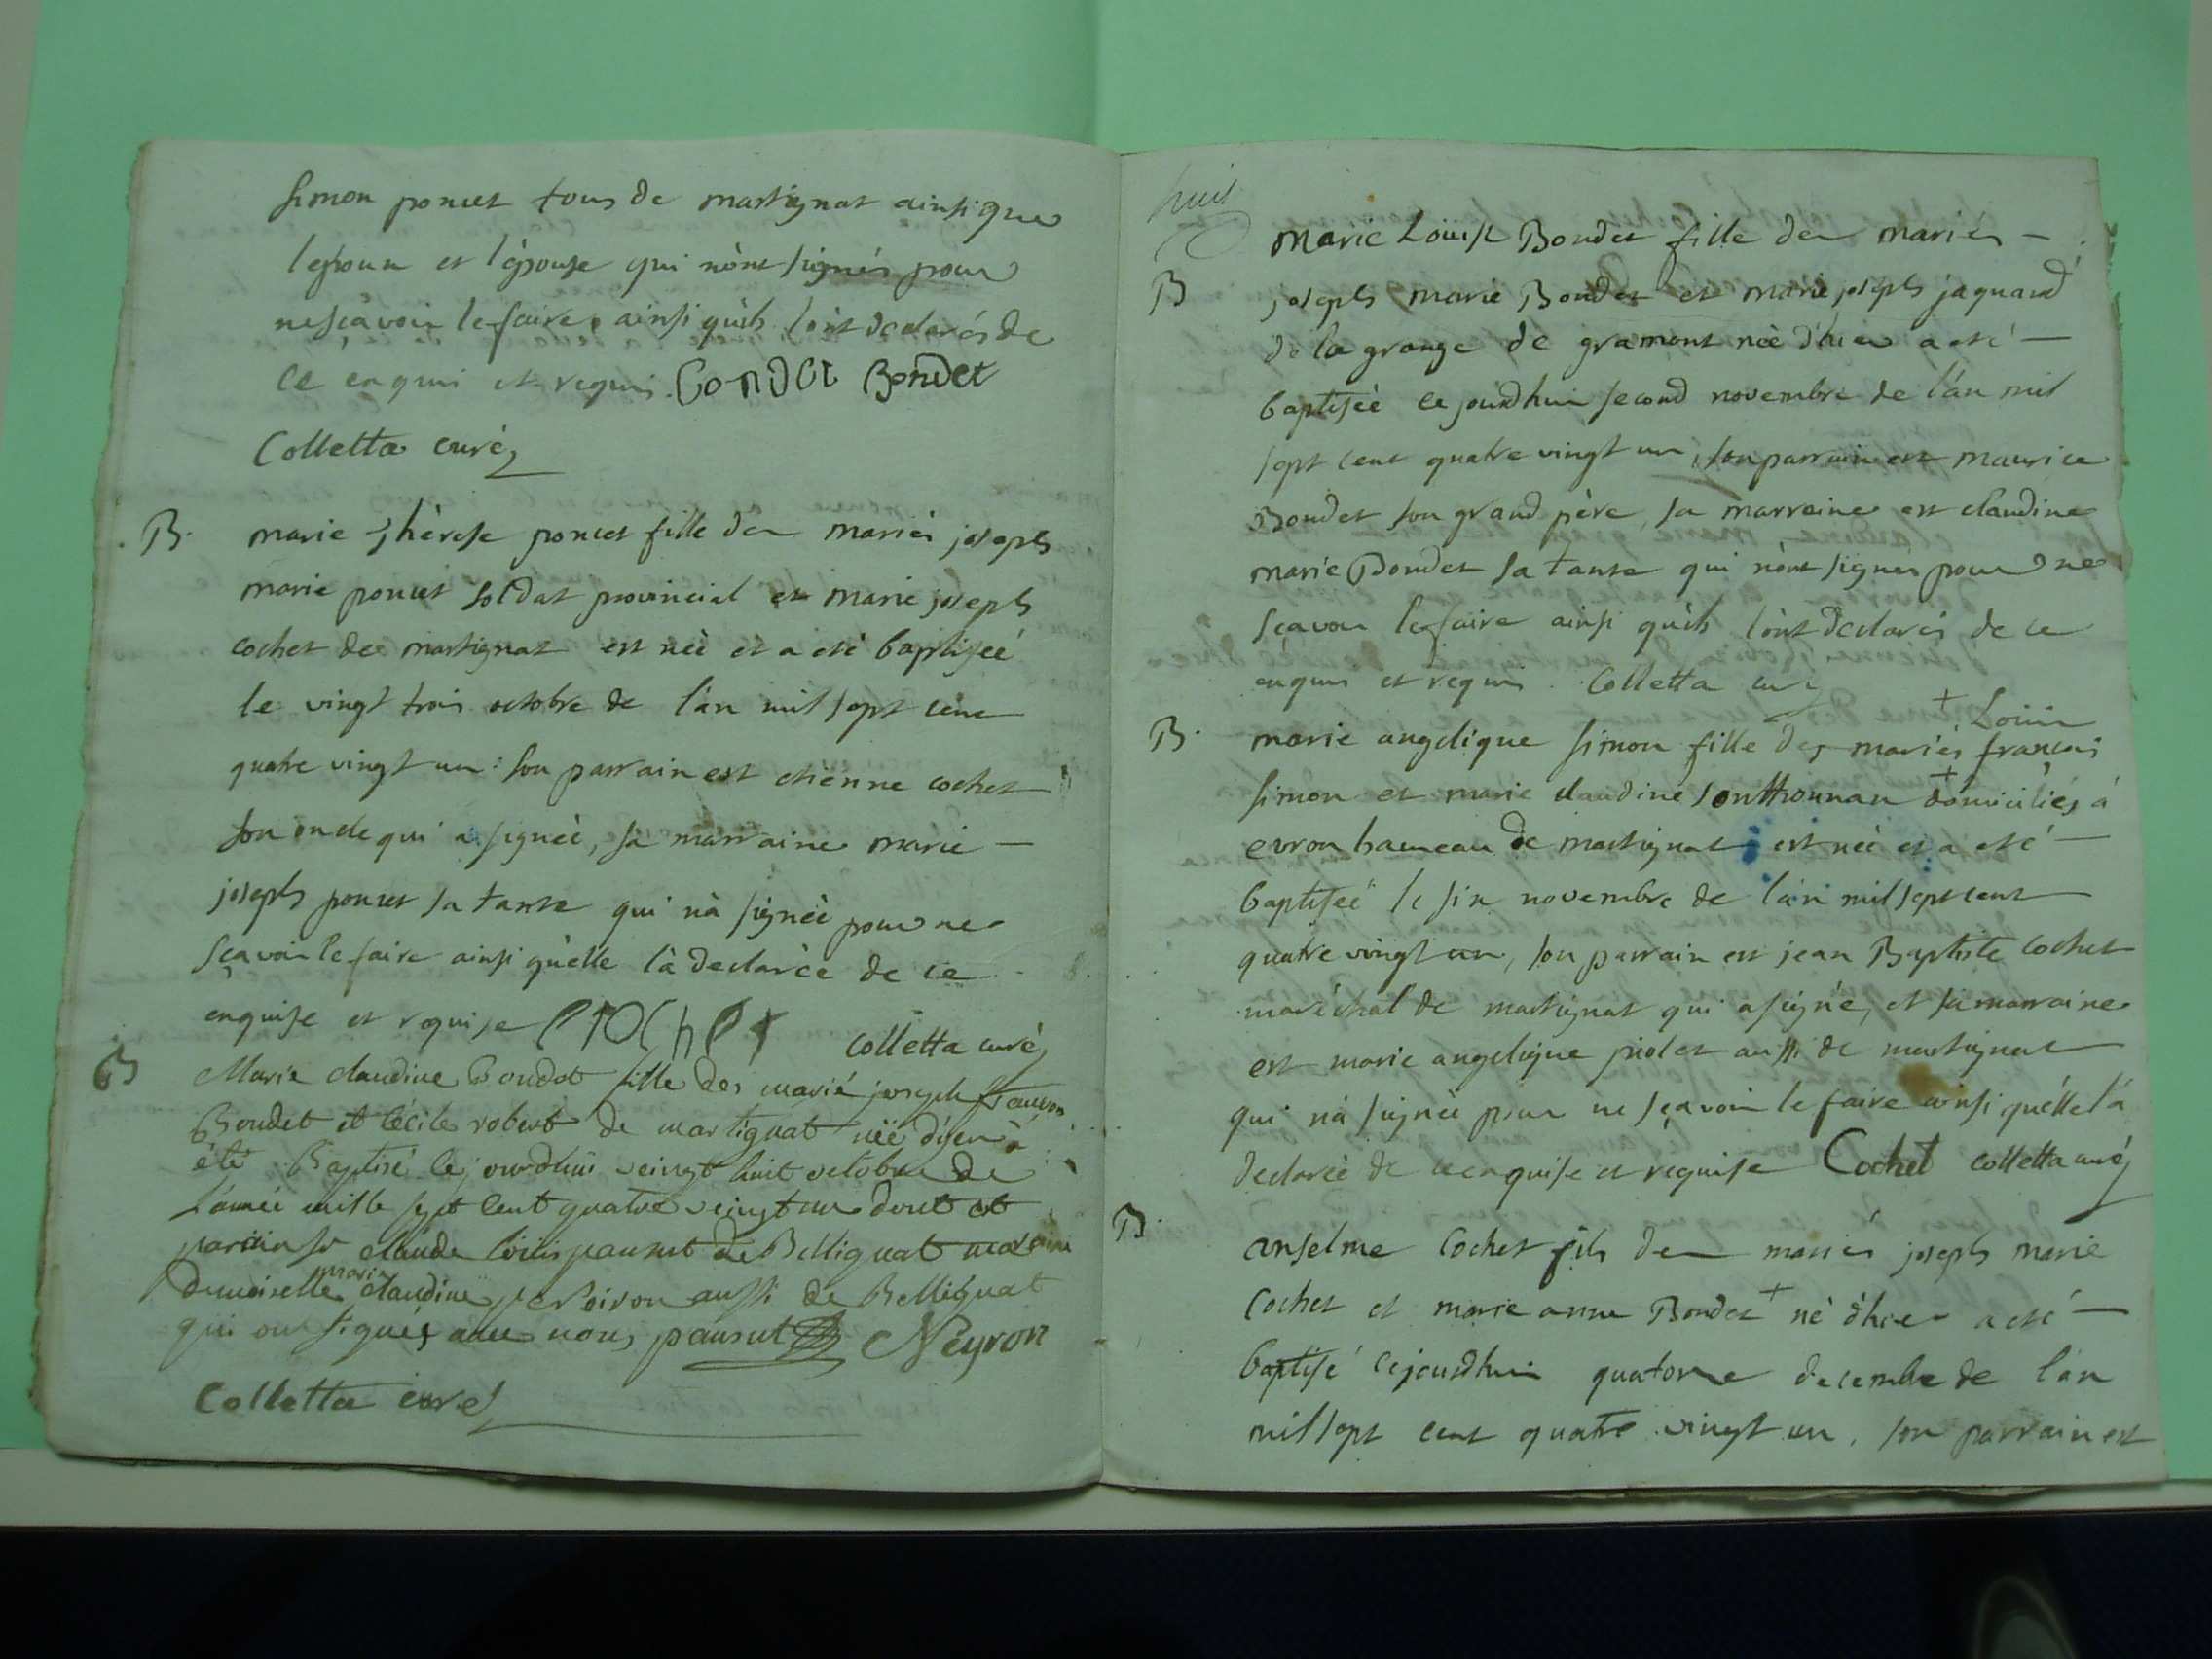 simon poncet tous de martignat ainsi que
lepoux et lépouse qui nònt signés pour
ne sçavoir le faire ainsi quìls lònt declarés de
ce enquis et requis. Bondet Bondet
Colletta curé
B. marie thèrese poncet fille des mariés joseph
marie poncet soldat provincial et marie joseph
cochet de martignat est néè et a eté baptiseé
le vingt trois octobre de làn mil sept cent
quatre vingt un : son parrain est etiènne cochet
son oncle qui a signéè, sa marraine marie —
joseph poncet sa tante qui nà signéè pour ne
sçavoir le faire ainsi quèlle là declaréè de ce
enquise et requise Cochet colletta curé
B Marie claudine Boudet fille des marié joseph
Boudet et Cécile robert de martignat néé d'hier à
été Baptisé le jourdhui veingt huit octobre de
l'année mille sept cent quatre veingt un dont et
parain sr claude loüis pansut de Bellignat maraine
demoiselle marie claudine aussi de Bellignat
qui ont signés avec nous pansut Neyron
Colletta curé
huit
marie Loüise Bondet fille des mariés —
B joseph marie Bondet et marie joseph jaquand
de la grange de gramont néè d'hier a eté —
baptiséè ce jourdhui second novembre de l'an mil
sept cent quatre vingt un, son parrain est maurice
Bondet son grand père, sa marraine est claudine
marie Bondet sa tante qui nònt signés pour ne
sçavoir le faire ainsi quìls lònt declarés de ce
enquis et requis. Colletta curé
+ Loüis
B. marie angelique simon fille des mariés françois
simon et marie claudine sonthonnax + domiciliés à
evron hameau de martignat est néè et a eté —
baptiséè le six novembre de làn mil sept cent
quatre vingt un, son parrain est jean Baptiste cochet
maréchal de martignat qui a signé, et sa marraine
est marie angelique piolet aussi de martignat
qui nà signéè pour ne sçavoir le faire ainsi quélle l'a
declaréè de ce enquise et requise Cochet colletta curé
B. anselme Cochet fils des mariés joseph marie
Cochet et marie anne Bondet + né d'hier a eté —
baptisé cejourdhui quatorze decembre de l'an
mil sept cent quatre vingt un, son parrain est